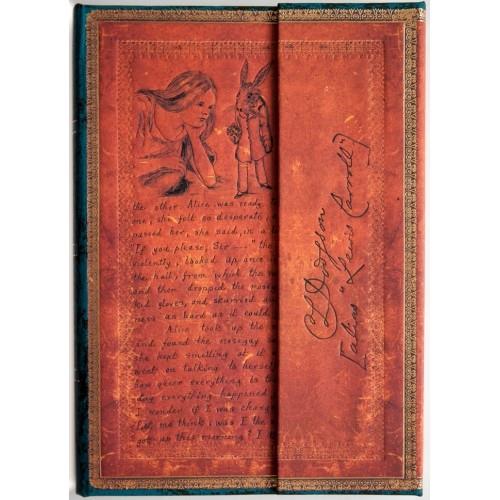 the other. Alice was ready
one, she felt so desperate,
passed her, she said, in a
"If you please, Sir —" the
violently, looked up once
the hall, from which the
and then dropped the nose
kid gloves, and skurried
ness as hard as it could
Alice took up the
and found the nosegay
she kept smelling at it
went on talking to herself
how queer everything is to
day everything happened
I wonder if I was chang
Let me think: was I the
got up this morning? I
CL Dodgson
[alias "Lewis Carroll"]